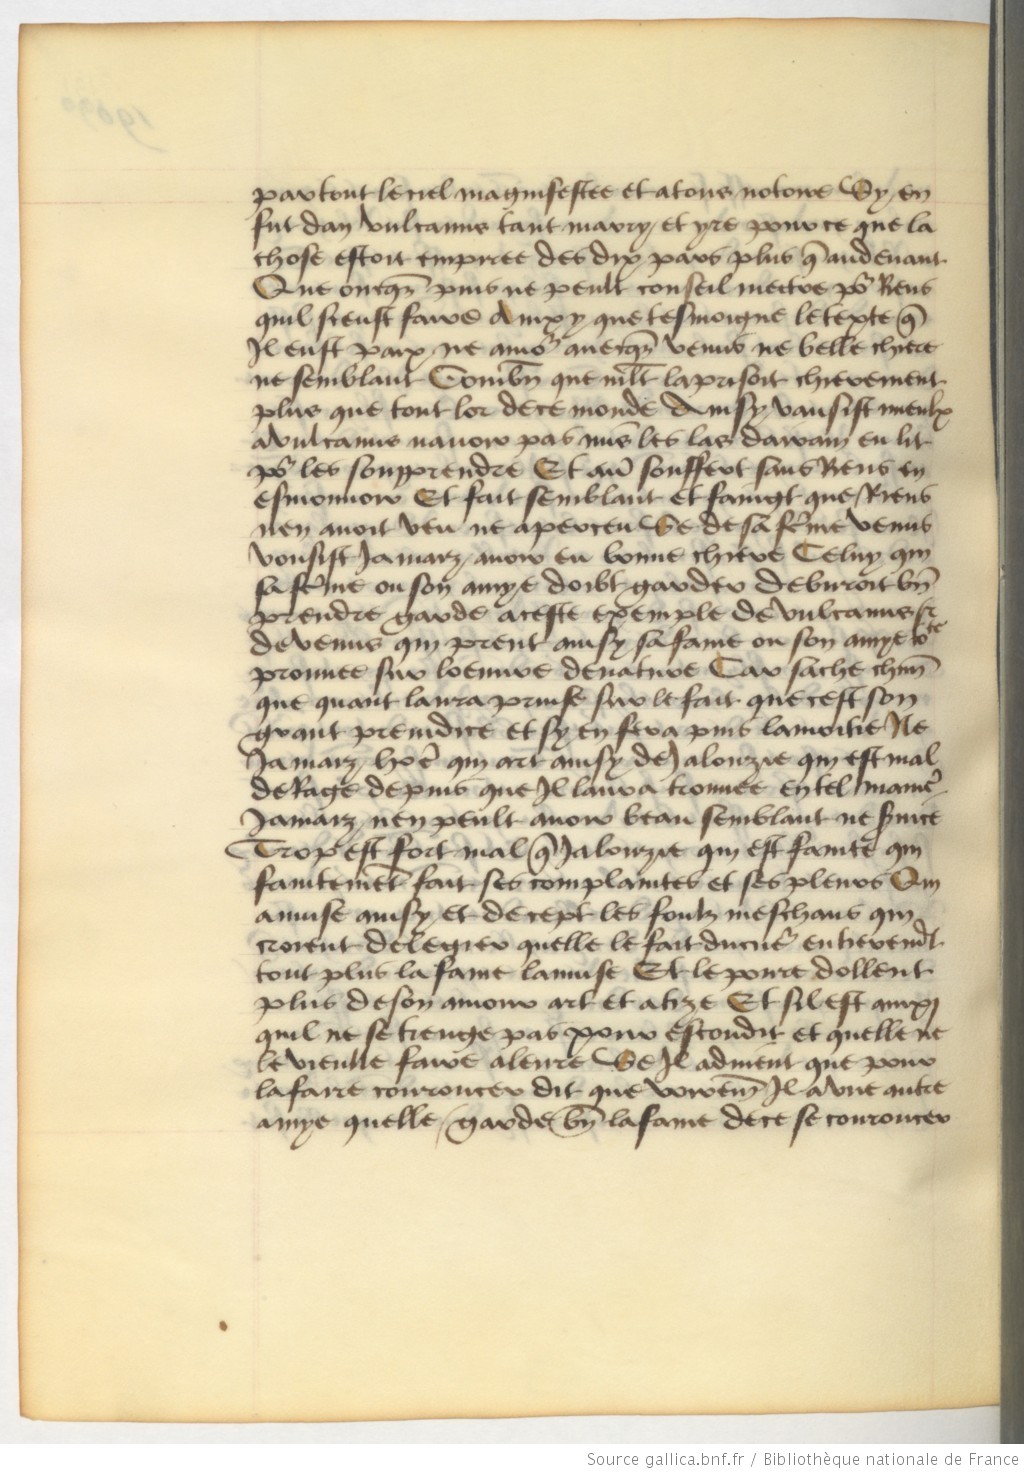 par tout le ciel magnifestee et a tous notoire Sy en
fut dan Vulcanus tant marry et yre pour ce que la
chose estoit empiree des dix pars plus q̄ au deuant
Que oncqz̄ puis ne peult conseil mectre po᷑ Riens
quil sceust faire Ainxy que tesmoigne le texte q̄
Il eust paix ne amo᷑ auecqz̄ venus ne belle chiere
ne semblant Combn̄ que mlt̄ la prisoit chierement
plus que tout lor de ce monde Ainsy vausist mieulx
a Vulcanus nauoir pas mis les las darain en lit
po᷑ les sourprendre Et aū souffert sans Riens en
esmouuoir Et fait semblant et faingt que Riens
nen auoit veu ne aperceu Se de sa fē̄me venus
vousist Jamaiz auoir eu bonne chiere Celuy qui
sa fē̄me ou son amye doibt garder deburoit bn̄
prendre garde a ceste exemple de vulcanus et
de venus qui prent ainsy sa fame ou son amye
prouuee sur loeuure de nature Car sache chūn
que quant laura prinse sur le fait que cest son
grant preiudice et sy en sera puis la moitie
Jamaiz hōe qui art ainsy de Jalouzie qui est mal
de Rage depuis que Il laura trouuee en tel manie᷑
Jamaiz nen peult auoir beau semblant ne seruice
Trop est fort mal q̄ Jalouzie qui est fainte qui
faintemēt fait ses complaintes et ses pleurs Qui
amuse ainsy et decept les foulz meschans qui
croient de legier quelle le fait
tout plus la fame lamuse Et le poure dollent
plus de son amour art et atize Et sil est ainxi
quil ne se treuge pas pour escondit et quelle ne
le vieulle faire aleure Se Il aduient que pour
la faire couroucer dit que voirēm̄ Il a vne autre
amye quelle garde bn̄ la fame de ce se couroucer
Source gallica.bnf.fr / Bibliothèque nationale de France